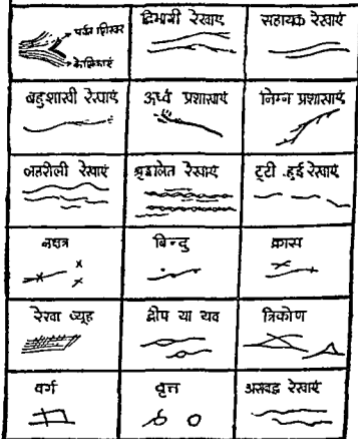 द्विभागी रेखाएं
सहायक रेखाएं
बहुशाखी रेखाएं
ऊर्ध्व प्रशाखाएं
निम्न प्रशाखाएं
रेखाएं
रेखाएं
टूटी हुई रेखाएं
नक्षत्र
बिन्दु
क्रास
रेखा व्यूह
द्वीप या यव
त्रिकोण
वर्ग
वृत्त
असंवद्ध रेखाएं